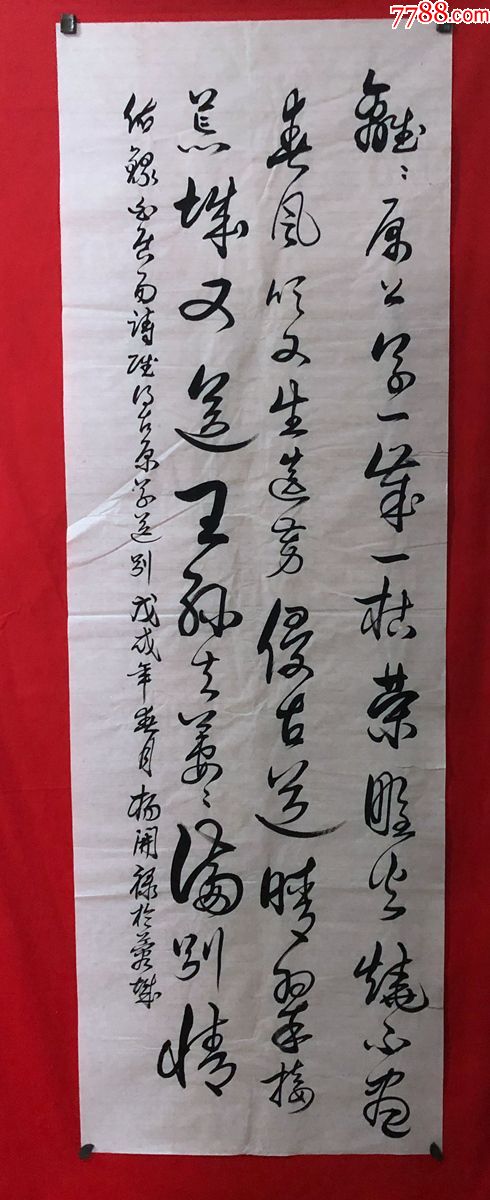 7788.com
離々原上草一歲一枯榮野火燒不盡
春風吹又生遠芳侵古道晴翠接
荒城又送王孫去萋々滿別情
錄白居易詩賦得古原草送別戊戌年春月楊開祿於城